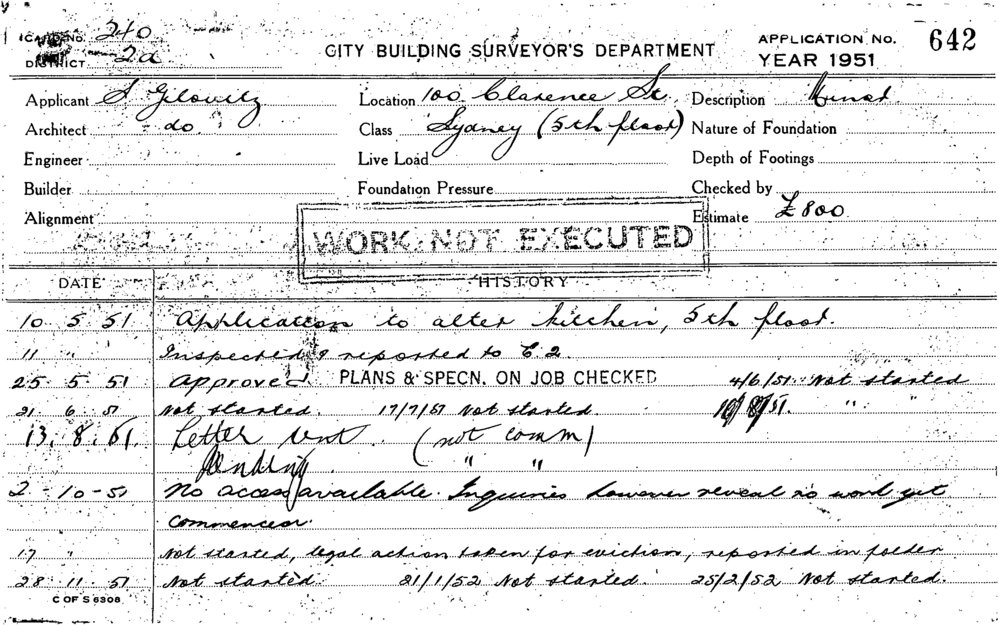 CARD No. 240
DISTRICT 2a
CITY BUILDING SURVEYOR'S DEPARTMENT
APPLICATION No. 642
YEAR 1951
Applicant S Gilovitz Location 100 Clarence St. Description Minor
Architect do Class Sydney (5th floor) Nature of Foundation
Engineer Live Load Depth of Footings
Builder Foundation Pressure Checked by
Alignment Estimate £800
WORK NOT EXECUTED
DATE HISTORY
10 5 51 Application to alter kitchen, 5th floor.
11 " Inspected & reported to C 2.
25 5 51 Approved. PLANS & SPECN. ON JOB CHECKED 4/6/51 Not started
21 6 51 Not started. 17/7/51 Not started. 10/8/51. " "
13. 8. 51. Letter sent. (not comm)
Pending " "
2 - 10 - 51 No access available. Inquiries however reveal no work yet
commenced.
17 " Not started, legal action taken for eviction, reported in folder
28 11 51 Not started. 21/1/52 Not started. 25/2/52 Not started.
C OF S 6308